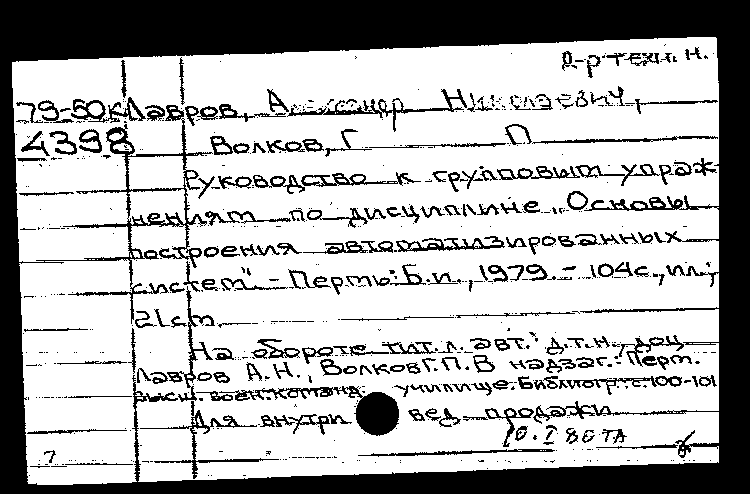 д-р техн. н.
79-50к Лавров, Александр Николаевич,
4398 Волков, Г П
Руководство к групповым упраж-
нениям по дисциплине „Основы
построения автоматизированных
систем". - Пермь: Б.и., 1979. - 104с., ил.;
21 см.
На обороте тит. л. авт.: д.т.н., доц.
Лавров А.Н., Волков Г.П. В надзаг.: Перм.
высш. воен. команд. училище. Библиогр.: с. 100-101
Для внутри вед. продажи
10. I 80 ТА
7